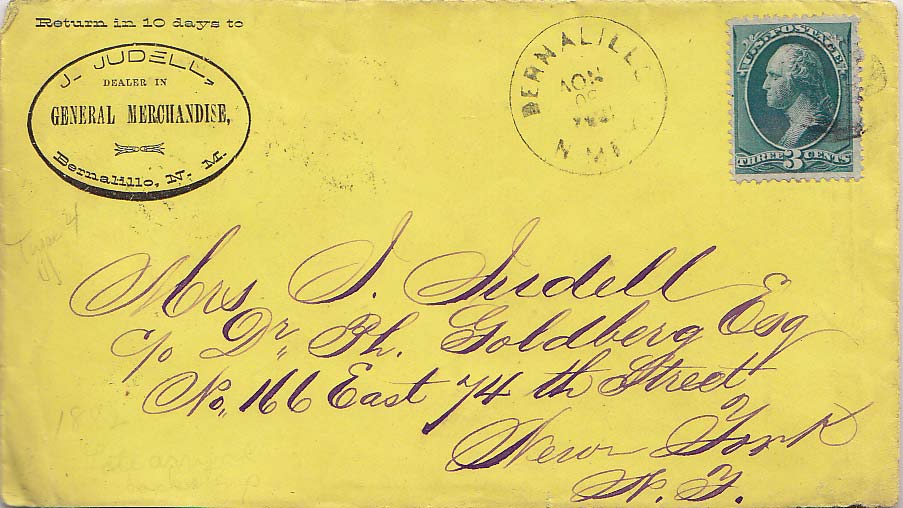 Return in 10 days to
J. JUDELL,
DEALER IN
GENERAL MERCHANDISE,
Bernalillo, N. M.
BERNALILL
NOV
N. M.
U.S. POSTAGE
THREE 3 CENTS
Type 4
Mrs J. Judell
c/o Dr. Ph. Goldberg Esq
No. 166 East 74th Street
New York
N. Y.